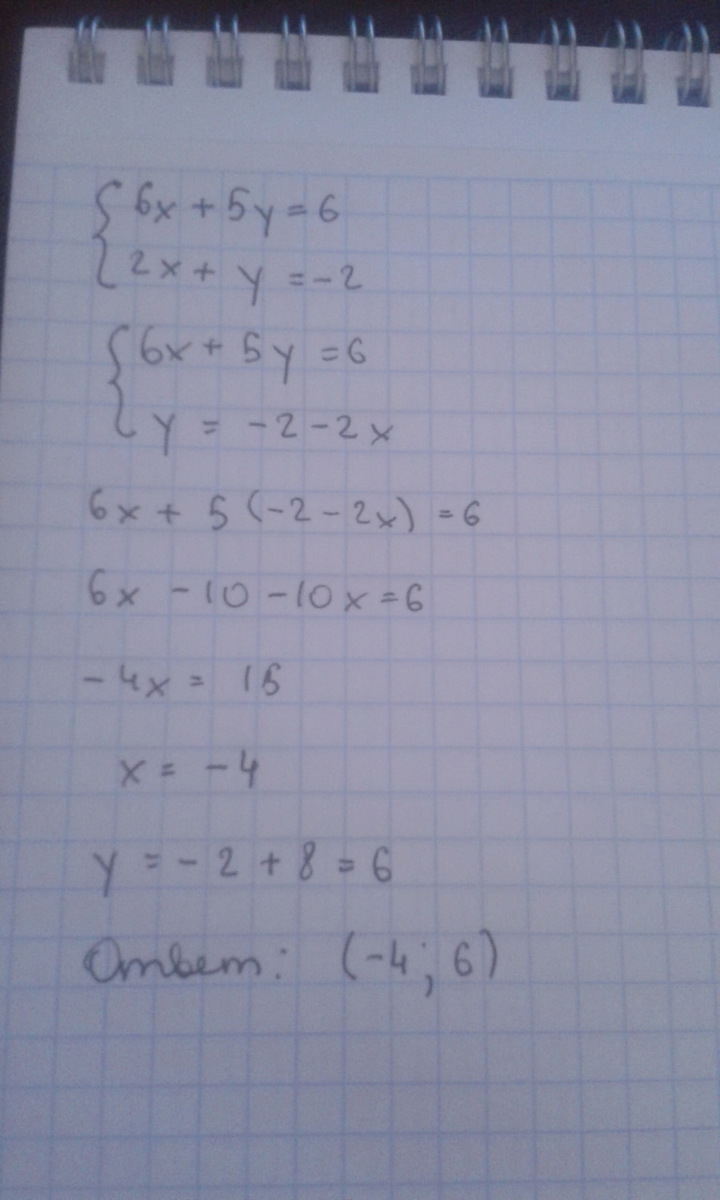 { 6x + 5y = 6
2x + y = -2
{ 6x + 5y = 6
y = -2 - 2x
6x + 5(-2 - 2x) = 6
6x - 10 - 10x = 6
-4x = 16
x = -4
y = -2 + 8 = 6
Ответ: (-4; 6)